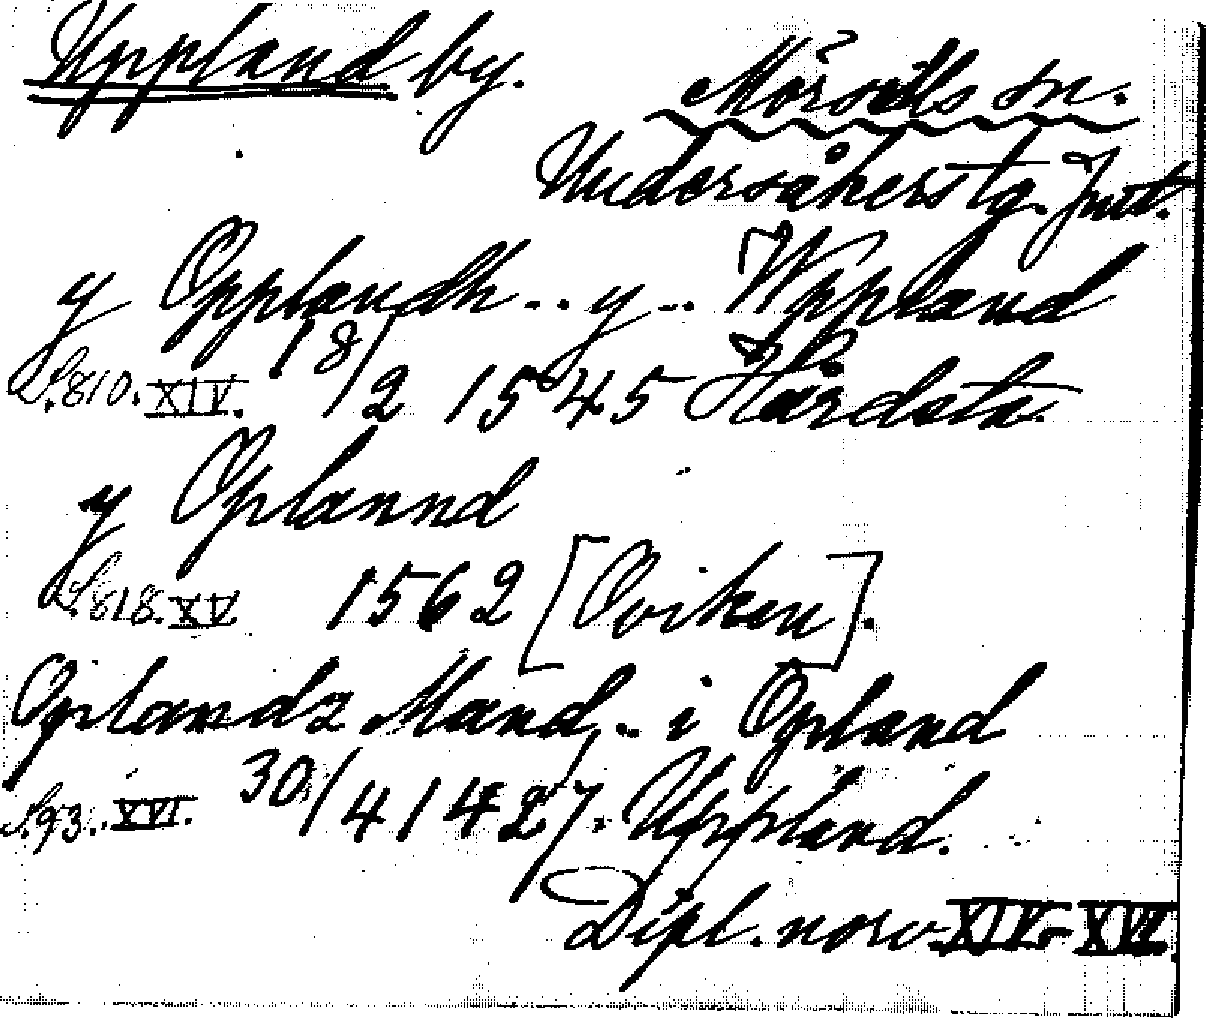 Uppland by.
Mörsills sn.
Undersåkers tg. Jmt.
y Opplandh .. y .. Wppland
S. 810. XIV. 18/2 1545 Hårdsta.
y Oplannd
S. 818. XV 1562 [Oviken].
Oplandz Mand .. i Opland
S. 93. XVI. 30/4 1427. Uppland.
Dipl. norv XIV-XVI